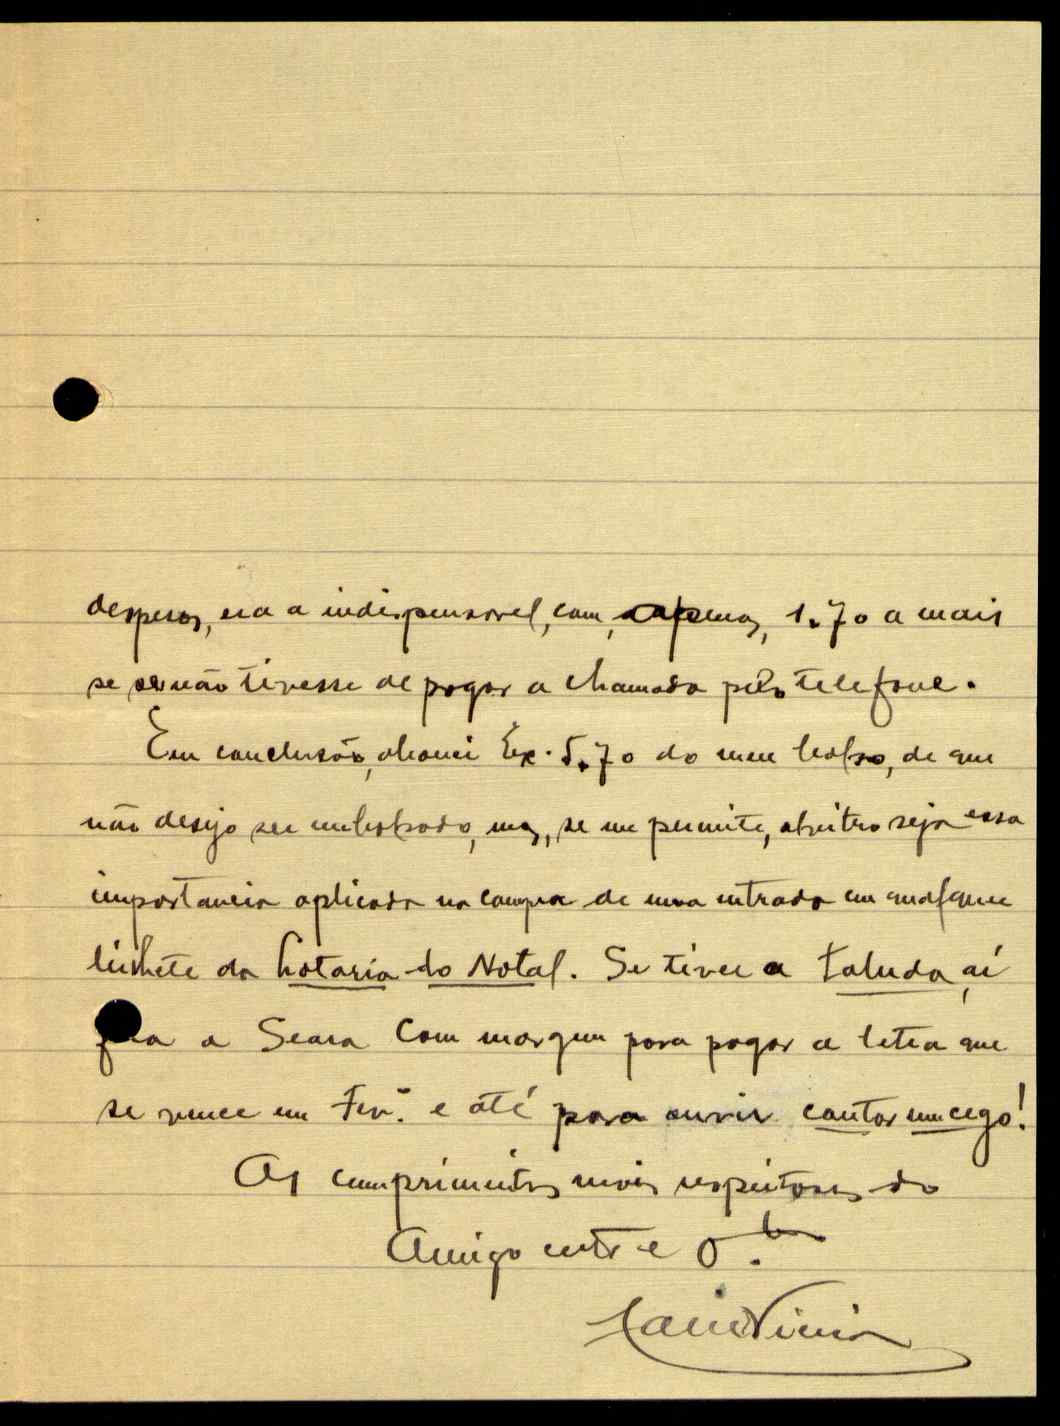 despesas, era a indispensavel, com, apenas, 1.70 a mais
se eu não tivesse de pagar a chamada pelo telefone.
Em conclusão, Ex. 5.70 do meu bolso, de que
não desejo ser embolsado, mas, se me permite, alvitro seja essa
importancia aplicada na compra de uma entrada em qualquer
bilhete da lotaria do Natal. Se tiver a taluda, aí
fica a Seara com margem para pagar a letra que
se vence em Fev.º e até para ouvir cantar um cego!
Os cumprimentos mais respeitosos do
Amigo certo e
Vieira